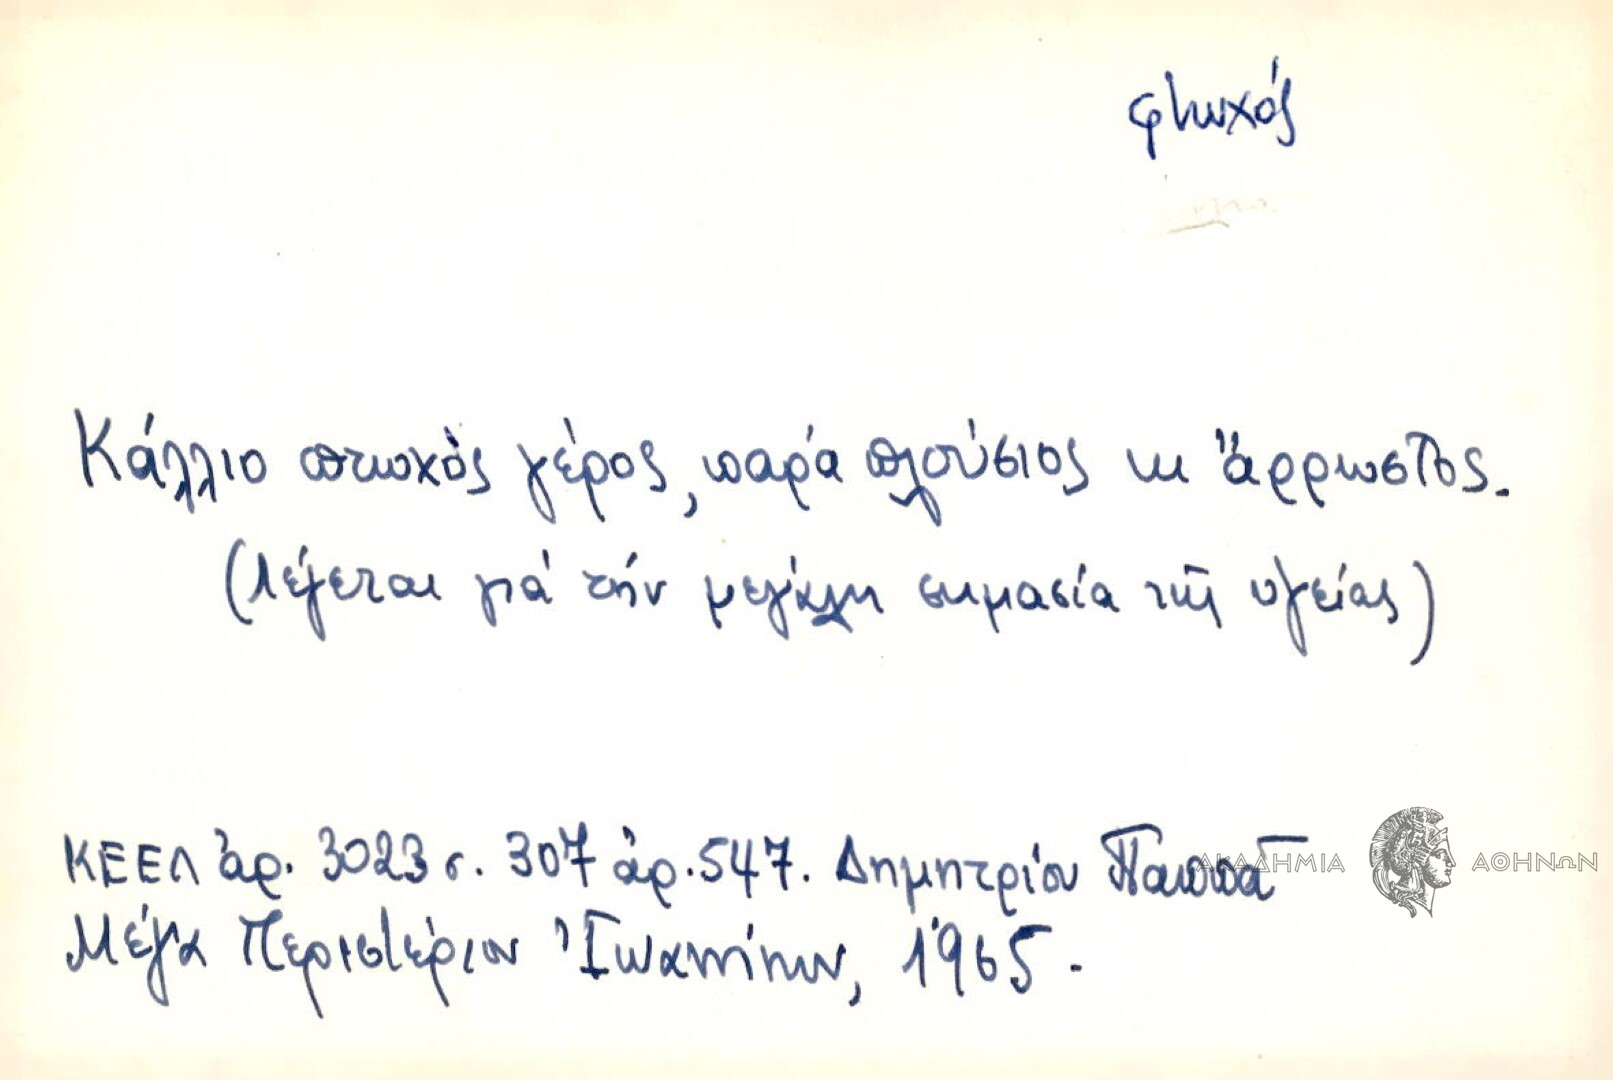 φτωχός
Κάλλιο πτωχὸς γέρος, παρά πλούσιος κι ἄρρωστος.
(Λέγεται γιά τήν μεγάλη σημασία τῆς υγείας)
ΚΕΕΛ ἀρ. 3023 σ. 307 ἀρ. 547. Δημητρίου Παππᾶ
Μέγα Περιστέριον Ἰωαννίνων, 1965.
ΑΚΑΔΗΜΙΑ ΑΘΗΝΩΝ